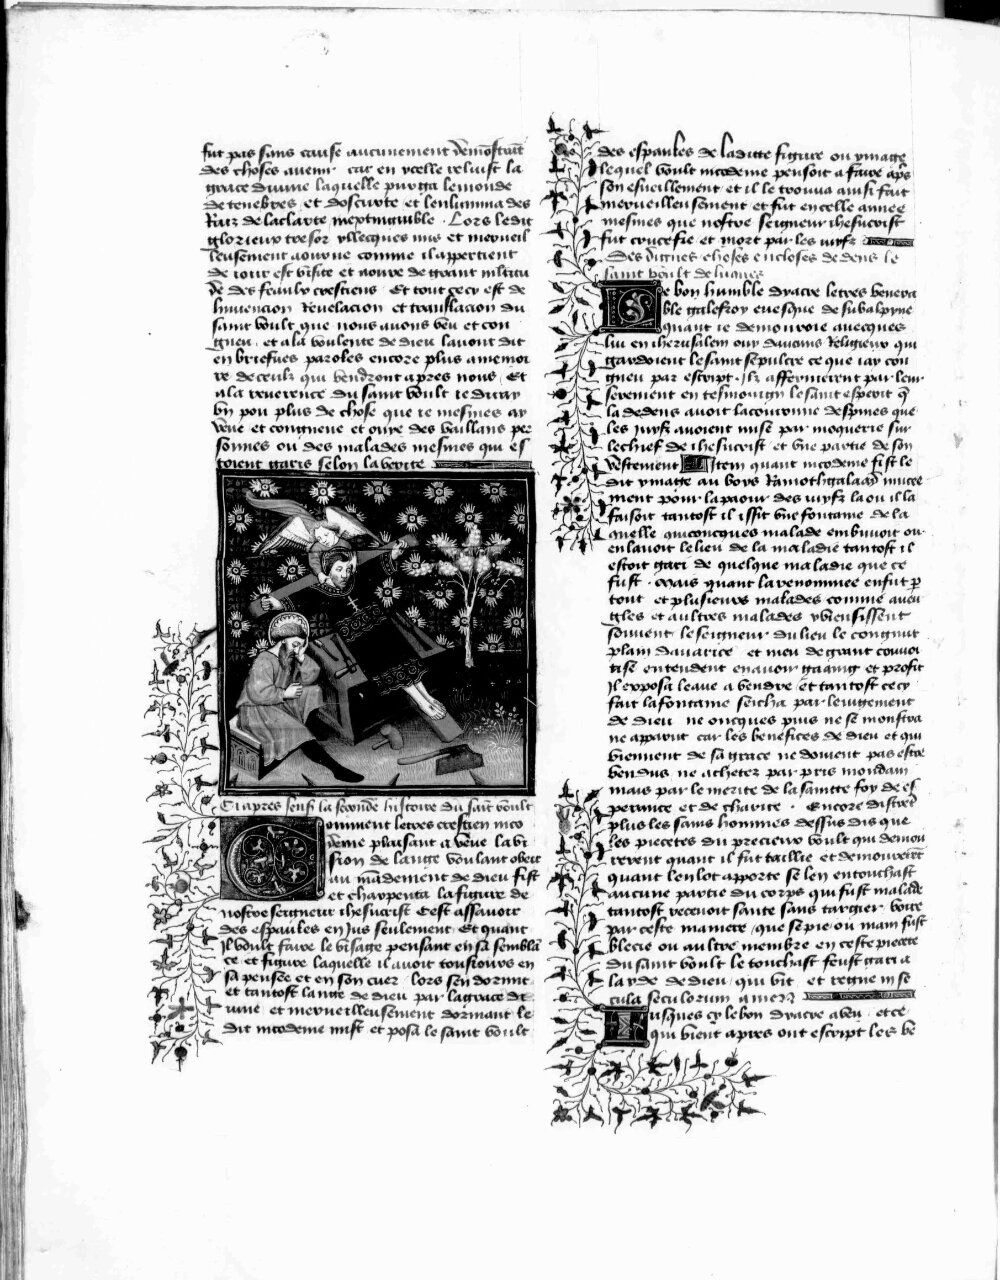 fut pas sans cause aucunement demōstrāt
des choses avenir car en ycelle reluist la
grace divine laquelle purga le monde
de tenebres et dobscurte et lenlumina des
Raiz de la clarte inextinguible . Lors ledit
glorieux tresor yllecques mis et merveil
leusement aourne comme il appertient
de jour est visite et aoure de grant multitu
de des feaulx crestiens Et tout cecy est de
linvencion Revelacion et translacion du
saint voult que nous avons veu et con
gneu et a la voulente de dieu lavons dit
en briefves paroles encore plus a memoi
re de ceulx qui vendront apres nous Et
a la reverence du saint voult je diray
un pou plus de chose que je mesmes ay
veue et congneue et oure des vaillans per
sonnes ou des malades mesmes qui es
toient garis selon la verite
Ci apres sensi la seconde histoire du saīt voult
Comment letres crestien nico
deme plaisant a veue la vi
sion de lange voulant obeir
au mādement de dieu fist
et charpenta la figure de
nostre seigneur ihesucrist Cest assavoir
des espaules en jus seulement Et quant
Il voult faire le visage pensant en sa semblā
ce et figure laquelle il avoit tousiours en
sa pensee et en son cuer lors sen dormit
et tantost lange de dieu par la grace di
vine et merveilleusement dormant le
dit nicodeme mist et posa le saint voult
des espaules de ladicte figure ou ymage
lequel voult nicodeme pensoit a faire aps
son esveillement et il le trouva ainsi fait
merveilleusement et fut en celle annee
mesmes que nostre seigneur ihesucrist
fut crucefie et mort par les iuyfz
Des dignes choses encloses dedens le
saint voult de luques
Le bon humble dyacre letres venera
ble galefroy evesque de subalpyne
quant je demouroie avecques
lui en iherusalem ouy daucuns Religieux qui
gardoient le saint sepulcre ce que jay con
gneu par escript . Ilz affermerent par leur
serement en tesmoing le saint esperit q̄
la dedens avoit la couronne despines que
les juyfz avoient mise par moquerie sur
le chief de ihesucrist et une partie de son
vestement Item quant nicodeme fist le
dit ymage au boys Ramothgalaad
ment pour la paour des iuyfz la ou il la
faisoit tantost il issit une fontaine de la
quelle quiconcques malade en buvoit ou
en lavoit le lieu de la maladie tantost il
estoit gari de quelque maladie que ce
fust . Mais quant la renommee en fut p
tout et plusieurs malades comme aveu
gles et aultres malades y venissent
souvent le seigneur du lieu le congnut
plain davarice et meu de grant convoi
tise entendent en avoir gaaing et profit
Il exposa leaue a vendre et tantost cecy
fait la fontaine seicha par le jugement
de dieu ne oncques puis ne se monstra
ne apparut car les benefices de dieu et qui
viennent de sa grace ne doivent pas estre
vendus ne achetez par pris mondain
mais par le merite de la saincte foy de es
perance et de charite . Encore disoiēt
plus les sains hommes dessus dis que
les piecetes du precieux voult qui demou
rerent quant il fut taillie et demourerēt
quant len lot apporte se len en touchast
aucune partie du corps qui fust malade
tantost recevoit sante sans targier voire
par ceste maniere que se pie ou main fust
blecie ou aultre membre en ceste piecete
du saint voult le touchast feust gari a
layde de dieu qui vit et regne in se
cula seculorum amen
Iusques cy le bon dyacre a veu et ce
qui vient apres ont escript les be